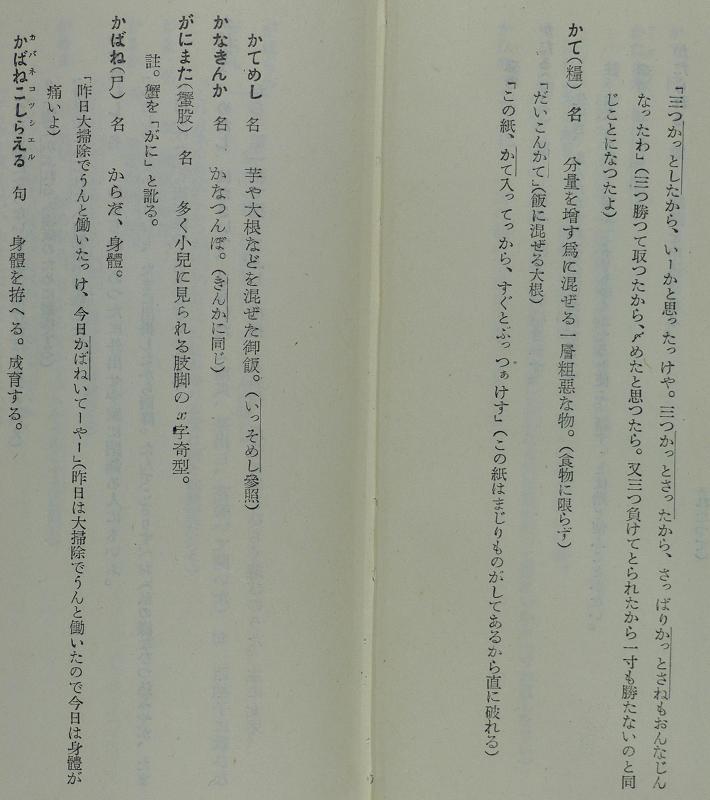 「三つかっとしたから、いーかと思ったっけや。三つかっとさったから、さっぱりかっとさねもおんなじん
なったわ」(三つ勝つて取つたから、〆めたと思つたら。又三つ負けてとられたから一寸も勝たないのと同
じことになつたよ)
かて(糧)　名　分量を増す爲に混ぜる一層粗惡な物。(食物に限らず)
「だいこんかて」(飯に混ぜる大根)
「この紙、かて入ってっから、すぐとぶっつぁけす」(この紙はまじりものがしてあるから直に破れる)
かてめし　名　芋や大根などを混ぜた御飯。(いっそめし參照)
かなきんか　名　かなつんぼ。(きんかに同じ)
がにまた(蟹股)　名　多く小兒に見られる肢脚のx字奇型。
註。蟹を「がに」と訛る。
かばね(尸)　名　からだ、身體。
「昨日大掃除でうんと働いたっけ、今日かばねいてーやー」(昨日は大掃除でうんと働いたので今日は身體が
痛いよ)
かばねこしらえる　句　身體を拵へる。成育する。
カバネコッシエル